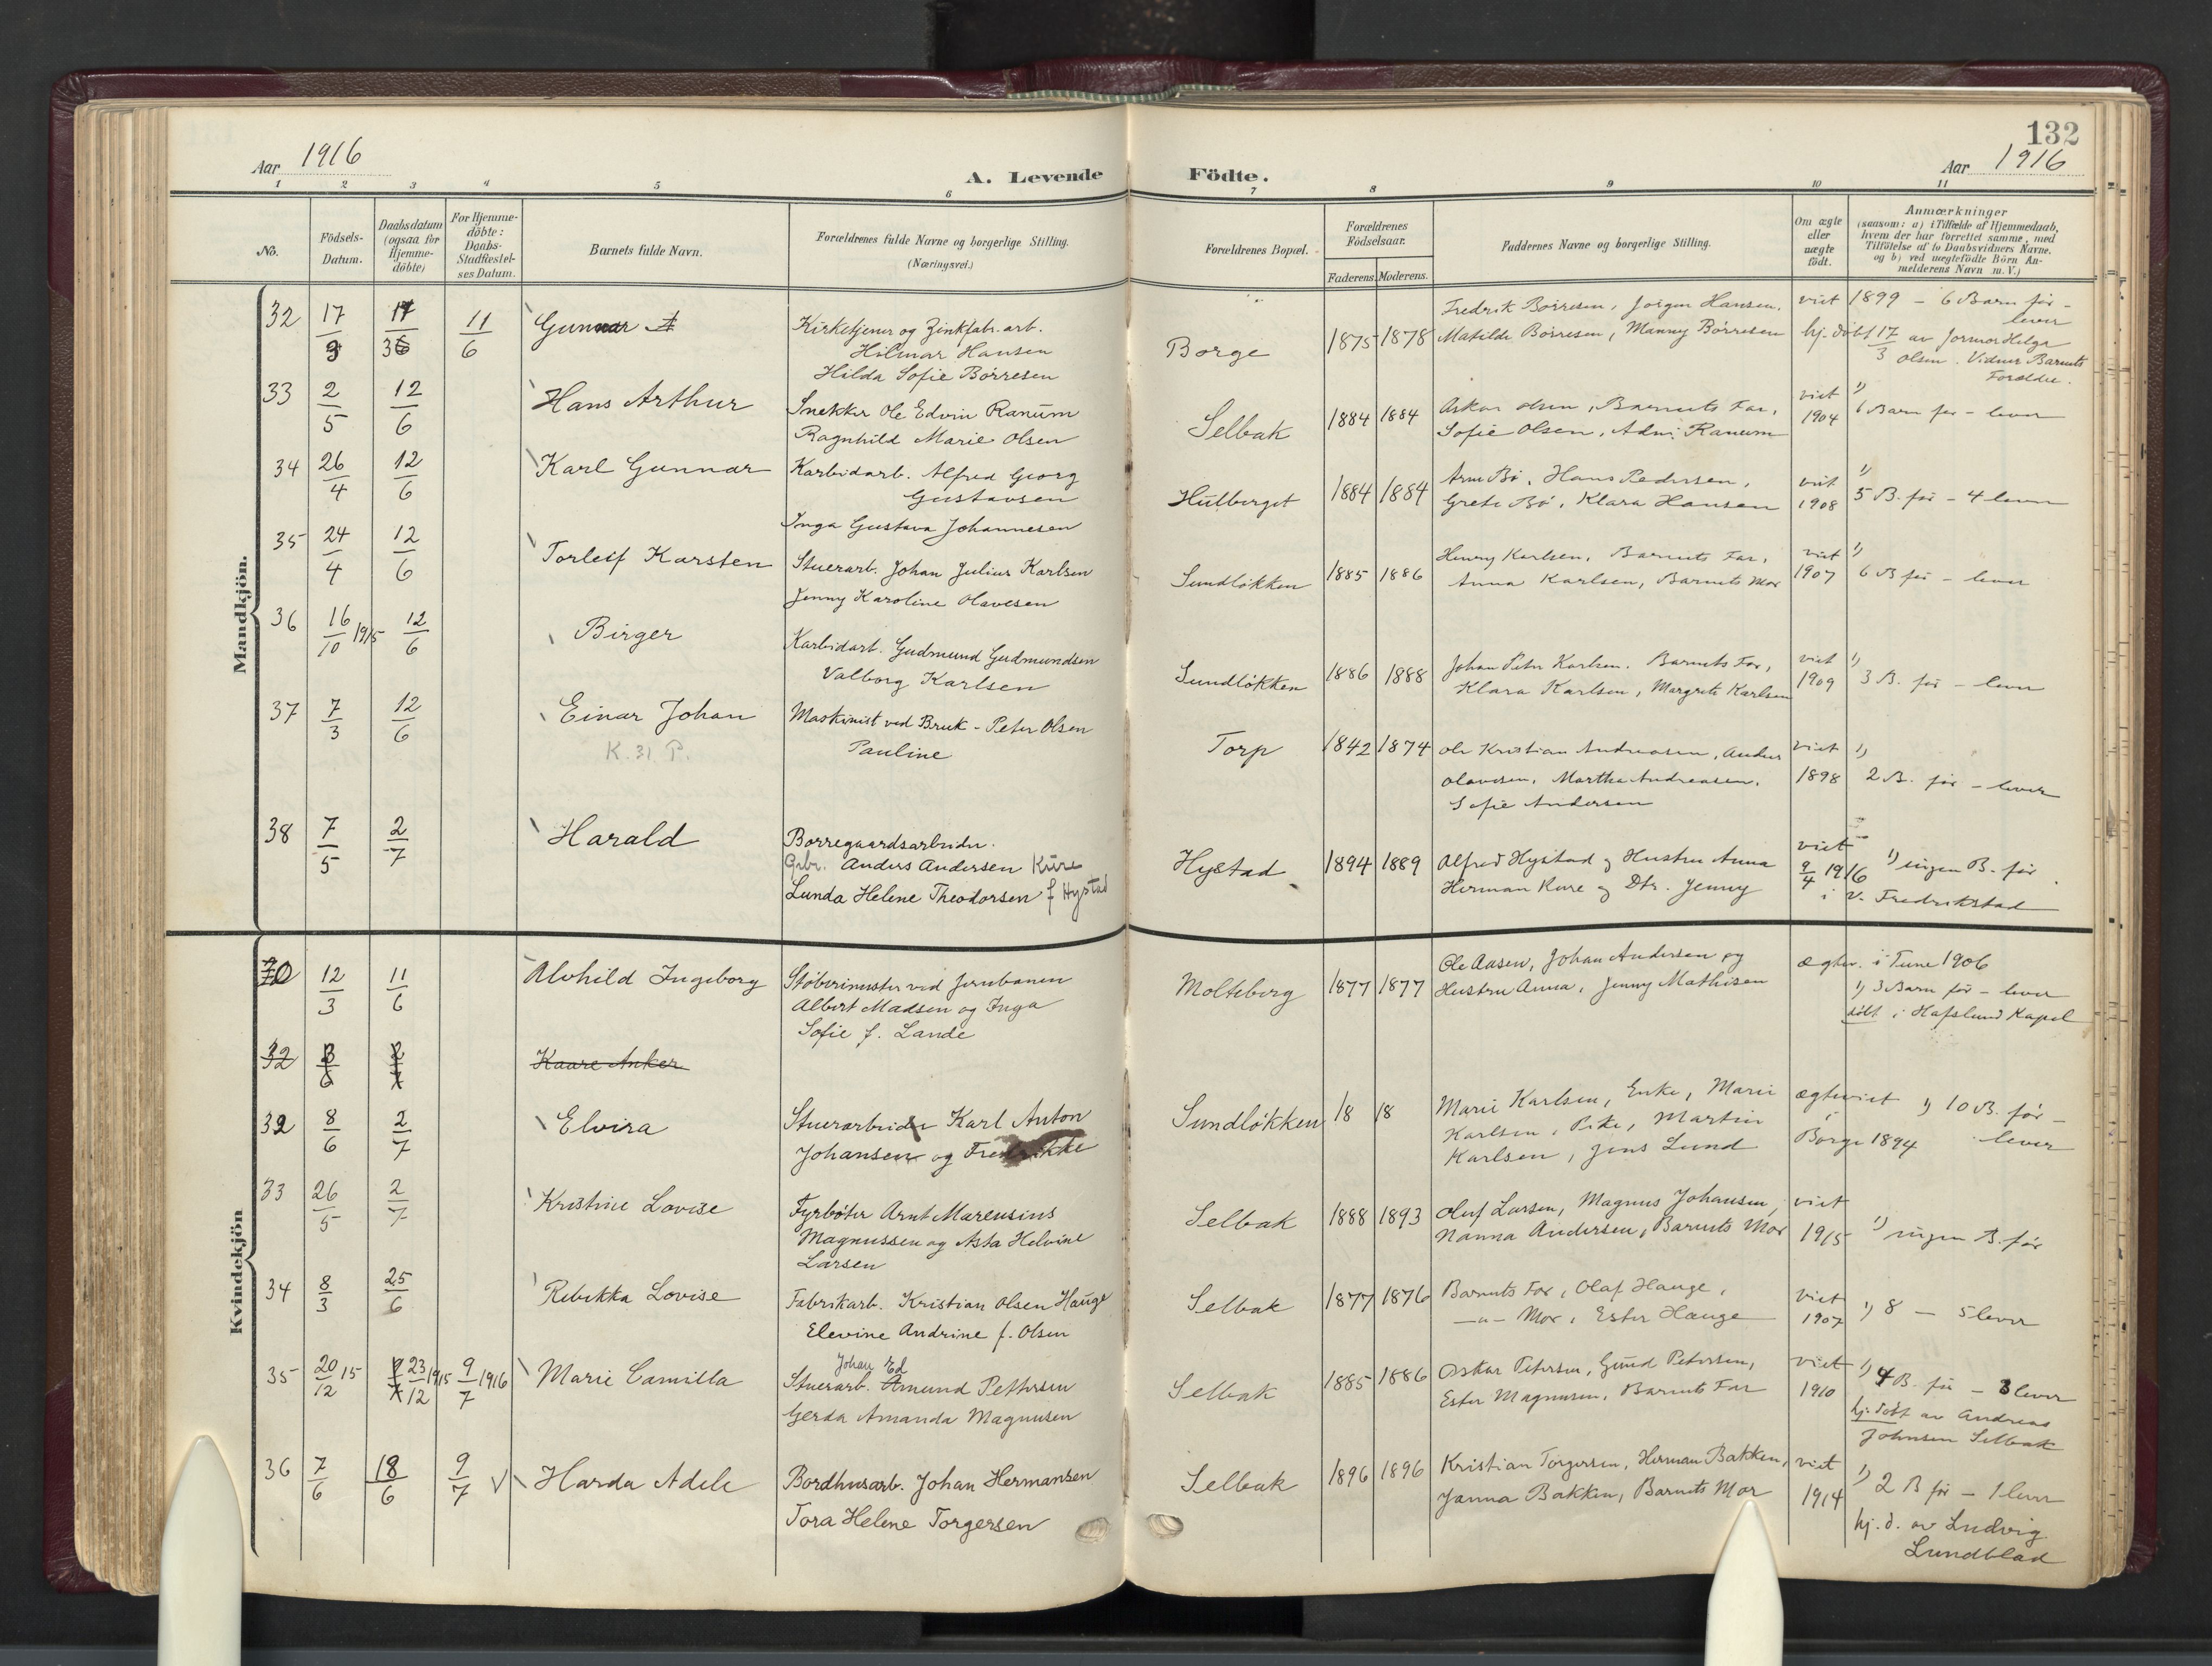 132
Aar 1916
A. Levende Födte.
Aar 1916
1 2 3 4 5 6 7 8 9 10 11
No.
Födsels-
Datum.
Daabsdatum
(ogsaa for
Hjemme-
döbte)
For Hjemme-
döbte:
Daabs-
Stadfæstel-
ses Datum.
Barnets fulde Navn.
Forældrenes fulde Navne og borgerlige Stilling.
(Næringsvei.)
Forældrenes Bopæl.
Forældrenes
Födselsaar.
Faderens. Moderens.
Faddernes Navne og borgerlige Stilling.
Om ægte
eller
uægte
födt.
Anmærkninger
(saasom: a) i Tilfælde af Hjemmedaab,
hvem der har forrettet samme, med
Tilföielse af to Daabsvidners Navne.
og b) ved uægtefödte Börn An-
melderens Navn m. V.)
Mandkjön.
32 17/3 17/3 11/6 Gunnar
Kirketjener og Zinkfab. arb.
Hilmar Hansen
Hilda Sofie Børresen
Borge 1875 1878
Fredrik Børresen, Jørgen Hansen.
Matilde Børresen, Manny Børresen
viet 1899 - 6 Barn før -
lever
hj. døbt 17/3 av Jormor Helga
Olsen. Vidner Barnets
Forældre.
33 2/5 12/6 Hans Arthur
Snekker Ole Edvin Ranum
Ragnhild Marie Olsen
Selbak 1884 1884
Askar Olsen, Barnets Far,
Sofie Olsen, Adni Ranum
viet
1904
1) 6 Barn før - lever
34 26/4 12/6 Karl Gunnar
Karbidarb. Alfred Georg
Gustavsen
Inga Gustava Johannesen
Hulberget 1884 1884
Arne Bø, Hans Pedersen,
Grete Bø, Klara Hansen
viet
1908
1) 5 B. før - 4 lever
35 24/4 12/6 Torleif Karsten
Stuerarb. Johan Julius Karlsen
Jenny Karoline Olavesen
Sundløkken 1885 1886
Henry Karlsen, Barnets Far,
Anna Karlsen, Barnets Mor
viet
1907
1) 6 B før - lever
36 16/10 1915 12/6 Birger
Karbidarb. Gudmund Gudmundsen
Valborg Karlsen
Sundløkken 1886 1888
Johan Peter Karlsen. Barnets Far,
Klara Karlsen, Margrete Karlsen
viet
1909
1) 3 B. før - lever
37 7/3 12/6 Einar Johan
K. 31 P.
Maskinist ved Bruk - Peter Olsen
Pauline
Torp 1842 1874
Ole Kristian Andreasen, Anders
Olavesen, Martha Andreasen,
Sofie Andersen
viet
1898
1) 2 B. før - lever
38 7/5 2/7 Harald
Borregaardsarbeider.
Gbr. Anders Andersen Kure
Lunda Helene Theodorsen f Hystad
Hystad 1894 1889
Alfred Hystad og Hustru Anna
Herman Kure og Dtr. Jenny
viet
9/4 1916
i V. Fredrikstad
1) ingen B. før
Kvindekjön
12/3 11/6 Alvhild Ingeborg
Støberimester ved Jernbanen
Albert Madsen og Inga
Sofie f. Lande
Molteberg 1877 1877
Ole Aasen, Johan Andersen og
Hustru Anna, Jenny Mathisen
ægtev. i Tune 1906
1) 3 Barn før - lever
døbt i Hafslund Kapel
32 Kaare Anker
32 8/6 2/7 Elvira
Stuerarbeider Karl Anton
Johansen og Fredrikke
Sundløkken 18 18
Marie Karlsen, Enke, Marie
Karlsen, Pike, Martin
Karlsen, Jens Lund
ægteviet i
Borge 1894
1) 10 B. før -
lever
33 26/5 2/7 Kristine Lovise
Fyrbøter Arnt Marensius
Magnussen og Asta Helvine
Larsen
Selbak 1888 1893
Oluf Larsen, Magnus Johansen,
Nanna Andersen, Barnets Mor
viet
1915
1) ingen B. før
34 8/3 25/6 Rebekka Lovise
Fabrikarb. Kristian Olsen Hauge
Elevine Andrine f. Olsen
Selbak 1877 1876
Barnets Far, Olaf Hauge,
-"- Mor, Ester Hauge
viet
1907
1) 8 - 5 lever
35 20/12 15 23/12 1915 9/7 1916 Marie Camilla
Johan Ed
Stuerarb. Amund Pettersen
Gerda Amanda Magnusen
Selbak 1885 1886
Oskar Petersen, Gund Petersen,
Ester Magnusen, Barnets Far
viet
1910
1) 4 B. før - 3 lever
hj. døbt av Andreas
Johnsen Selbak
36 7/6 18/6 9/7 V Harda Adele
Bordhusarb. Johan Hermansen
Tora Helene Torgersen
Selbak 1896 1896
Kristian Torgersen, Herman Bakken,
Janna Bakken, Barnets Mor
viet
1914
1) 2 B før - 1 lever
hj. d. av Ludvig
Lundblad